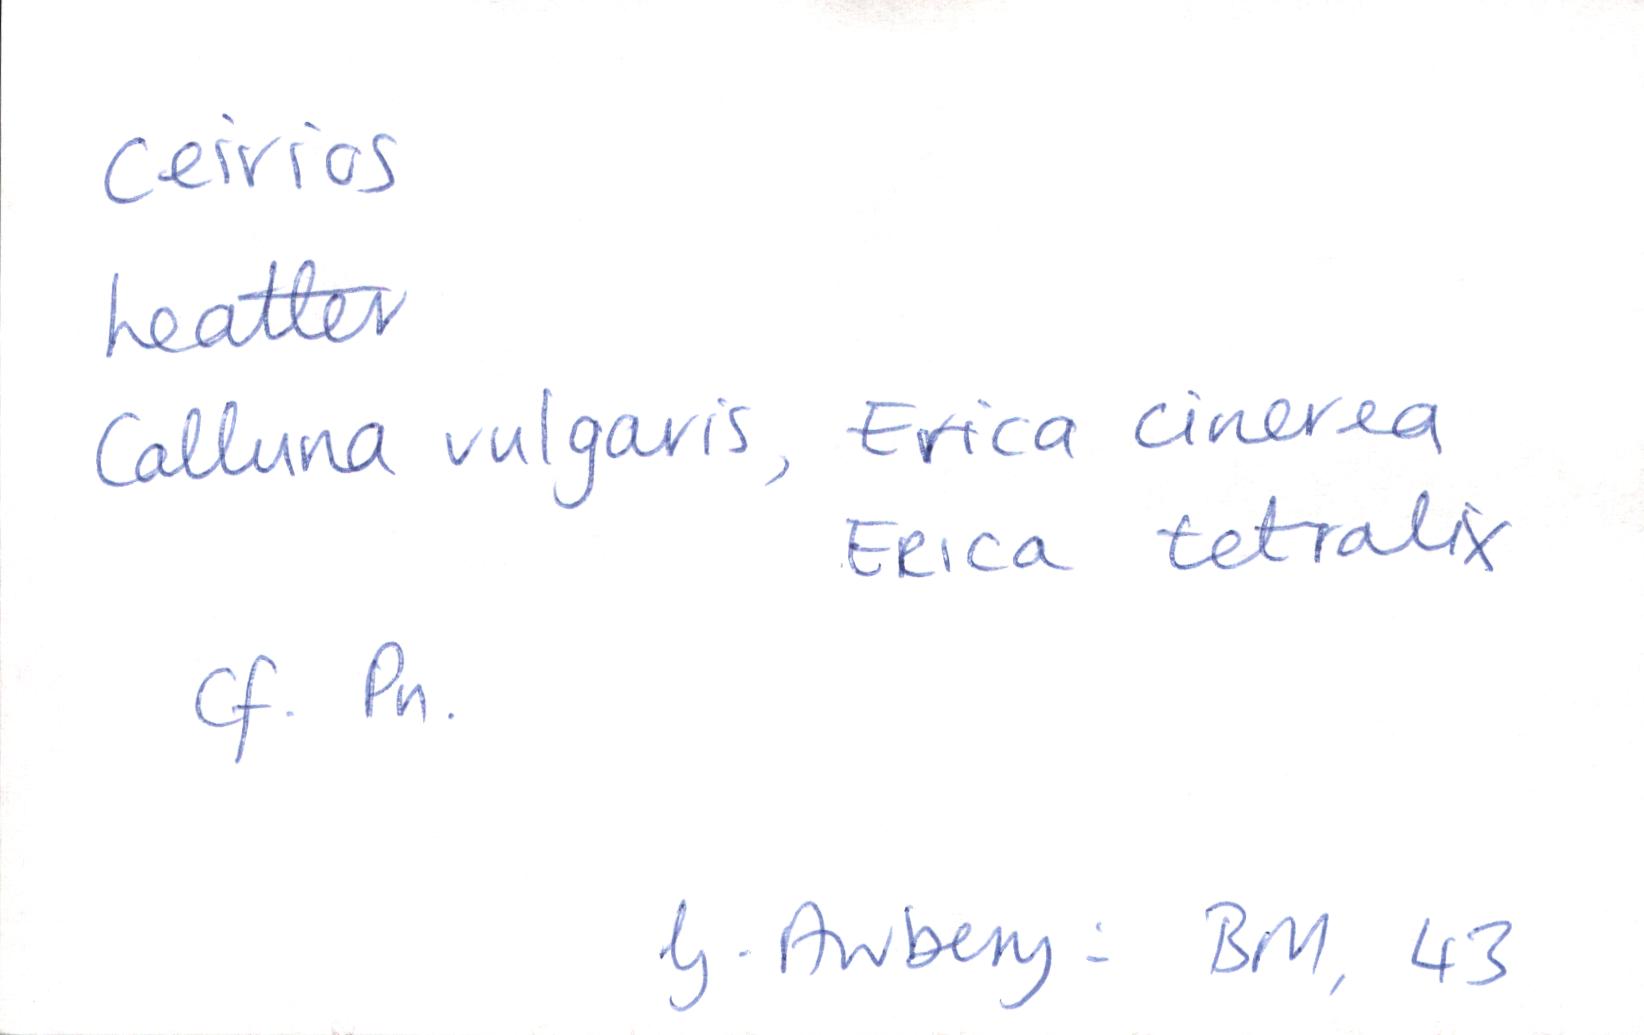 ceirios
heather
Calluna vulgaris, Erica cinerea
Erica tetralix
Cf. Pn.
G. Awbery: BM, 43